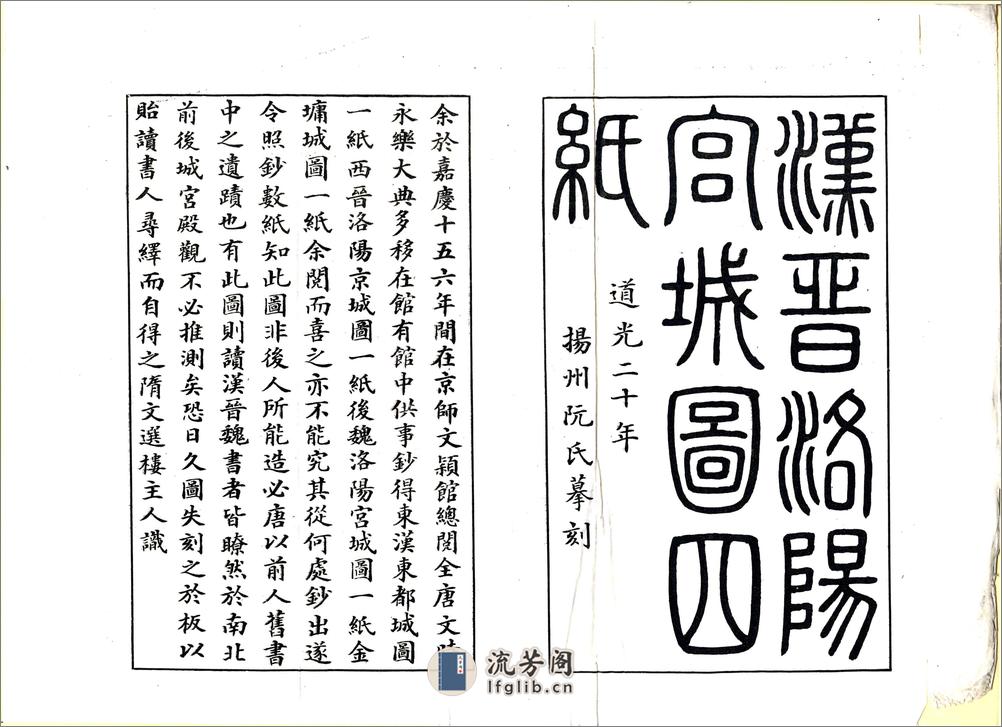 漢晉洛陽
宮城圖四
紙
道光二十年
揚州阮氏摹刻
余於嘉慶十五六年間在京師文穎館總閱全唐文時
永樂大典多移在館有館中供事鈔得東漢東都城圖
一紙西晉洛陽京城圖一紙後魏洛陽宮城圖一紙金
墉城圖一紙余閱而喜之亦不能究其從何處鈔出遂
令照鈔數紙知此圖非後人所能造必唐以前人舊書
中之遺蹟也有此圖則讀漢晉魏書者皆瞭然於南北
前後城宮殿觀不必推測矣恐日久圖失刻之於板以
貽讀書人尋繹而自得之隋文選樓主人識
流芳阁
lfglib.cn